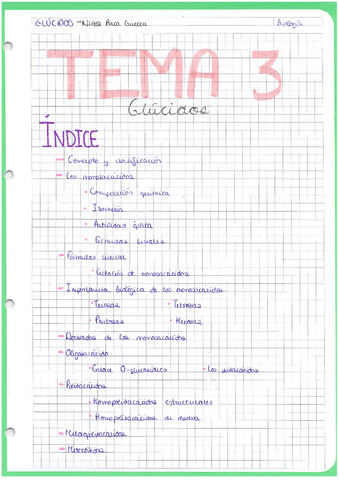 GLÚCIDOS - Nives Baca Guerra
Biología
TEMA 3
Glúcidos
ÍNDICE
- Concepto y clasificación
- Los monosacáridos
· Composición química
· Isomería
· Actividad óptica
· Fórmulas lineales
- Fórmulas cíclicas
· Ciclación de monosacáridos
- Importancia biológica de los monosacáridos
· Triosas · Tetrosas
· Pentosas · Hexosas
- Derivados de los monosacáridos
- Oligosacáridos
· Enlace O-glucosídico · Los disacáridos
- Polisacáridos
· Homopolisacáridos estructurales
· Homopolisacáridos de reserva
- Heteropolisacáridos
- Heterósidos